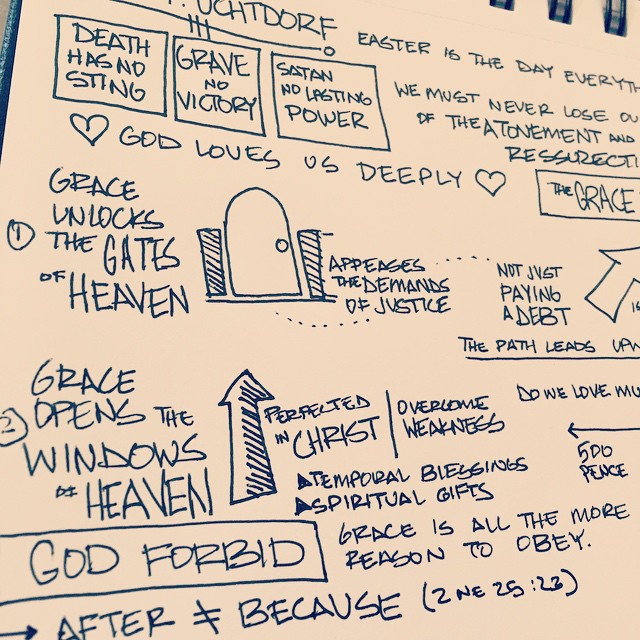 F. UCHTDORF
DEATH
HAS NO
STING
GRAVE
NO
VICTORY
SATAN
NO LASTING
POWER
EASTER IS THE DAY EVERYTH
WE MUST NEVER LOSE OU
OF THE ATONEMENT AND
RESSURECTI
GOD LOVES US DEEPLY
THE GRACE
1
GRACE
UNLOCKS
THE GATES
OF HEAVEN
APPEASES
THE DEMANDS
OF JUSTICE
NOT JUST
PAYING
A DEBT
IS
THE PATH LEADS UPW
2
GRACE
OPENS THE
WINDOWS
OF HEAVEN
PERFECTED
IN CHRIST
OVERCOME
WEAKNESS
TEMPORAL BLESSINGS
SPIRITUAL GIFTS
DO WE LOVE MU
500
PENCE
GOD FORBID
GRACE IS ALL THE MORE
REASON TO OBEY.
→ AFTER ≠ BECAUSE (2 NE 25:23)